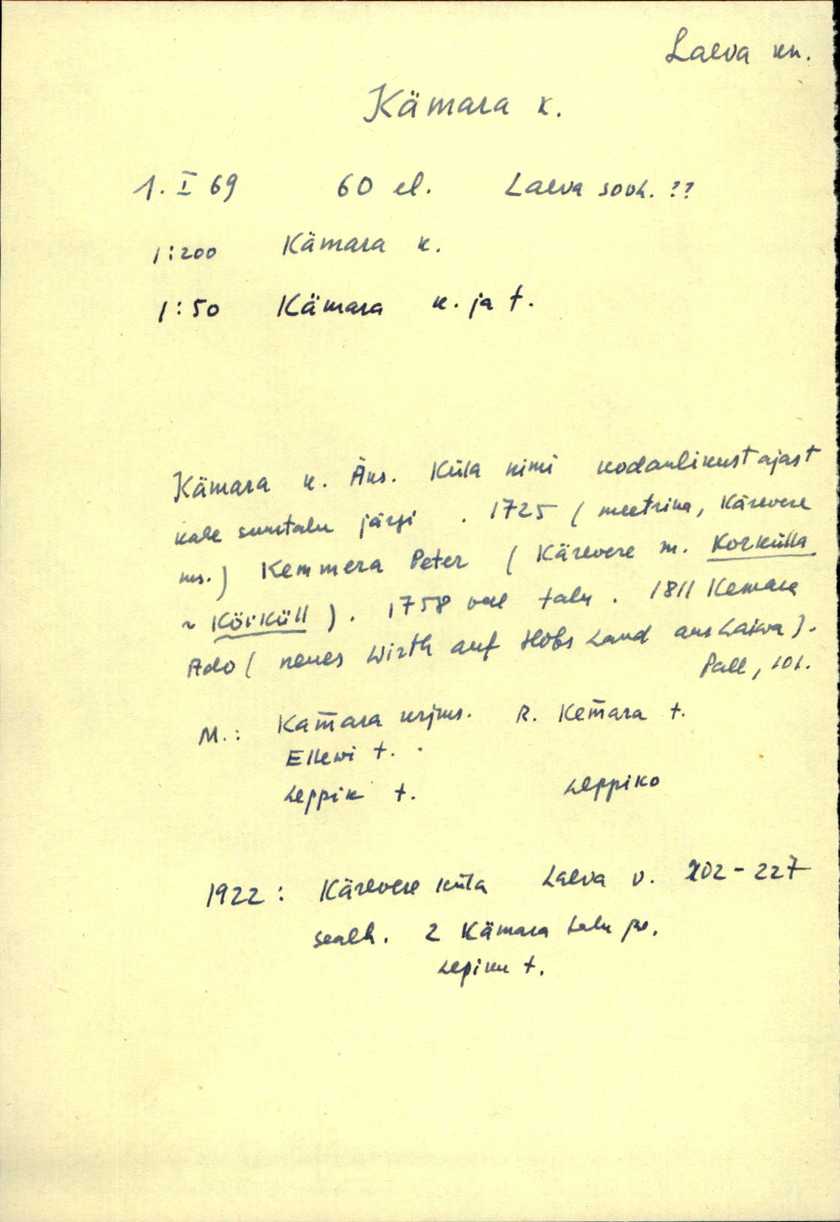 Laeva kn.
Kämara k.
1. I 69 60 el. Laeva sovh. ??
1:200 Kämara k.
1:50 Kämara k. ja t.
Kämara k. Äks. Küla nimi kodanlikust ajast
kahe suurtalu järgi . 1725 ( meetrika, Kärevere
ms.) Kemmera Peter ( Kärevere m. Korkülla
~ Körküll ) . 1758 veel talu . 1811 Kemara
Ado ( neues Wirth auf Hofs Land aus Laiwa ) .
Pall, 101.
M.: Kam̄ara krjms. R. Kem̄ara t.
Ellewi t. .
Leppik t. Leppiko
1922 : Kärevere küla Laeva v. 202 - 227
sealh. 2 Kämara talu
Lepiku t.